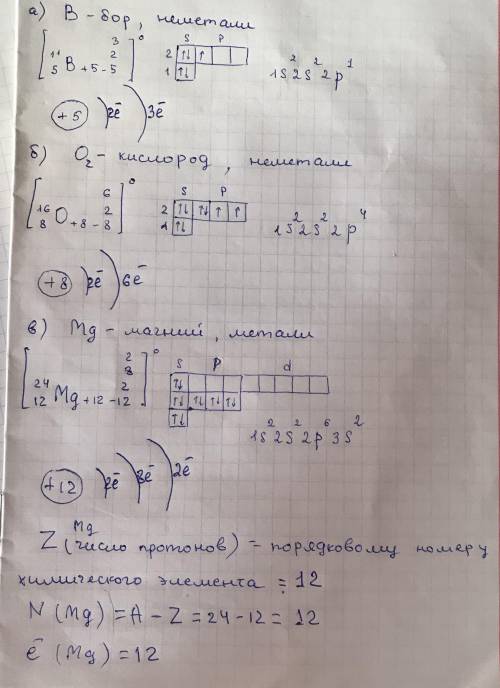 а) B - бор, неметалл
[ ¹¹₅B +5 -5 2 3 ]⁰ s p 2 ↑↓ ↑ 1 ↑↓ 1s²2s²2p¹
+5 ) 2ē ) 3ē
б) O₂ - кислород, неметалл
[ ¹⁶₈O +8 -8 2 6 ]⁰ s p 2 ↑↓ ↑↓ ↑ ↑ 1 ↑↓ 1s²2s²2p⁴
+8 ) 2ē ) 6ē
в) Mg - магний, металл
[ ²⁴₁₂Mg +12 -12 2 8 2 ]⁰ s p d ↑↓ ↑↓ ↑↓ ↑↓ ↑↓ ↑↓ 1s²2s²2p⁶3s²
+12 ) 2ē ) 8ē ) 2ē
Mg
Z (число протонов) = порядковому номеру
химического элемента = 12
N (Mg) = A - Z = 24 - 12 = 12
ē (Mg) = 12